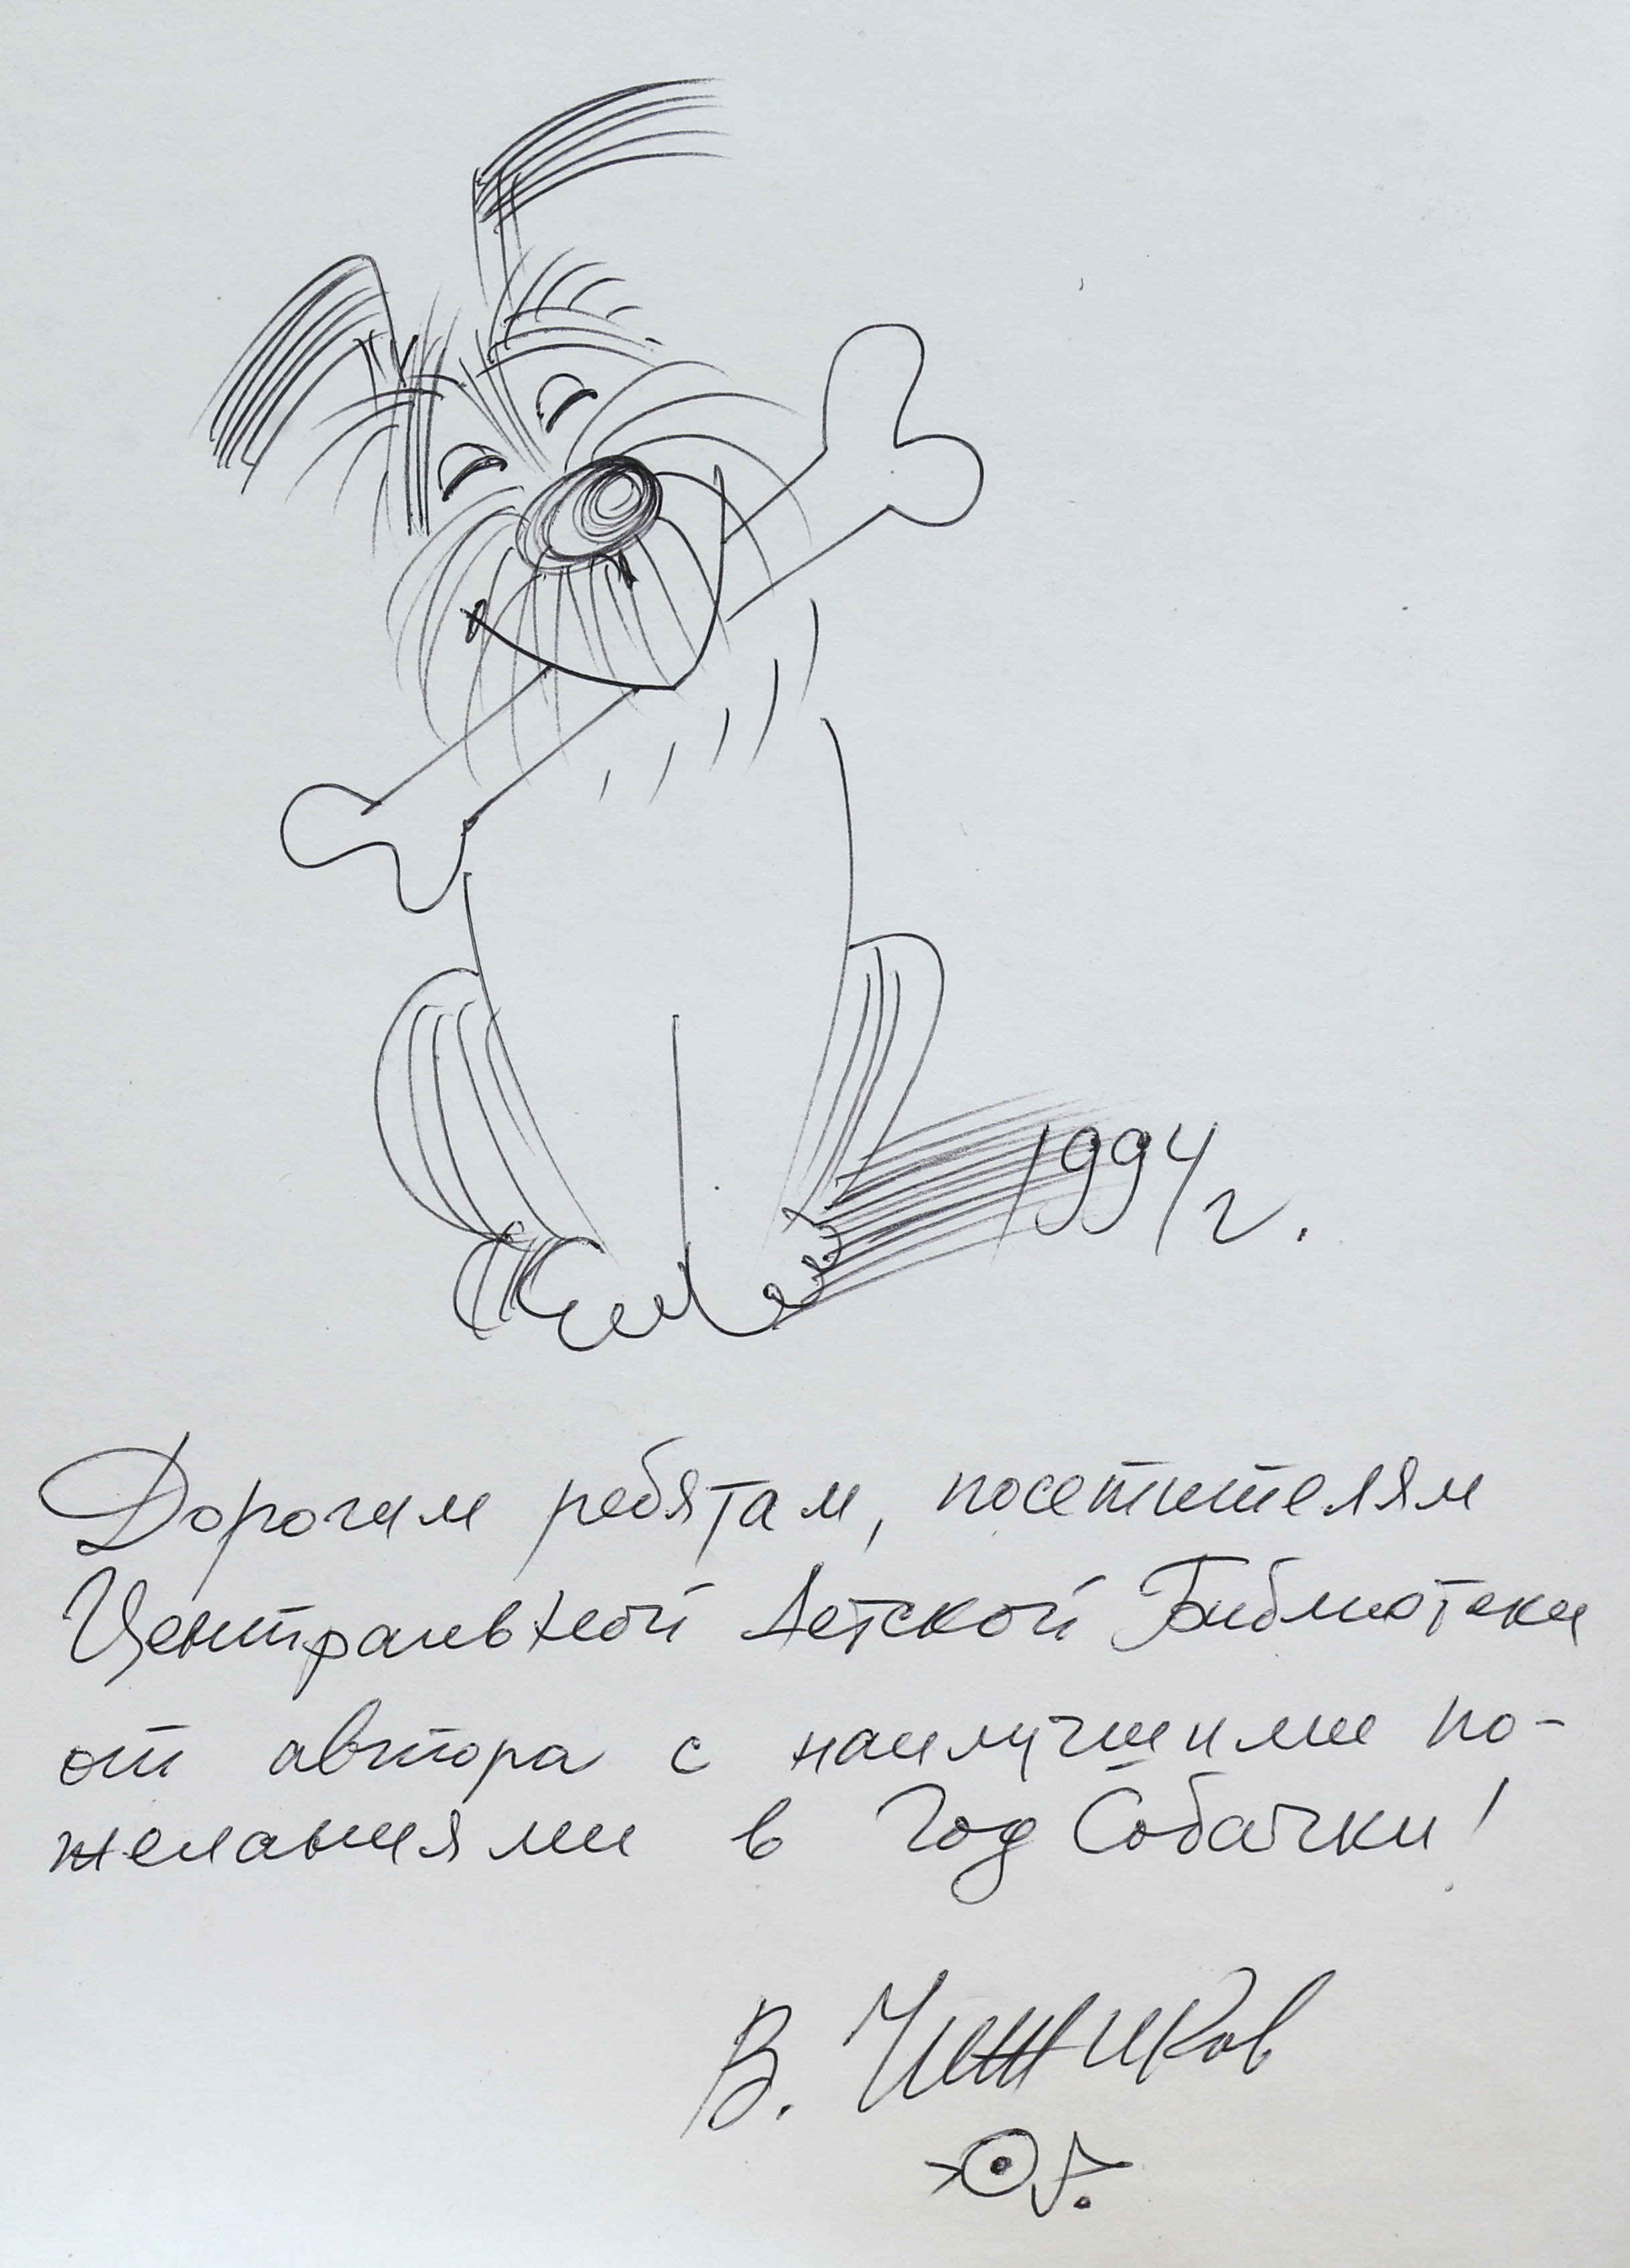 1994 г.
Дорогим ребятам, посетителям
Центральной Детской Библиотеки
от автора с наилучшими по-
желаниями в Год Собачки!
В. Чижиков